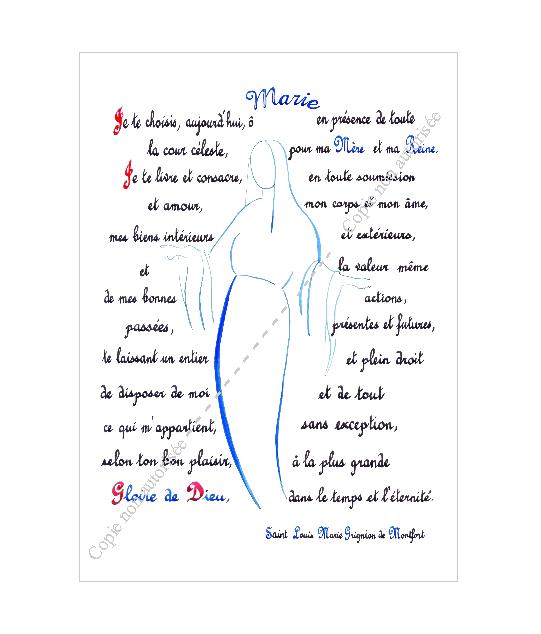 Marie
Je te choisis, aujourd'hui, ô en présence de toute
la cour céleste, pour ma Mère et ma Reine.
Je te livre et consacre, en toute soumission
et amour, mon corps et mon âme,
mes biens intérieurs et extérieurs,
et la valeur même
de mes bonnes actions,
passées, présentes et futures,
te laissant un entier et plein droit
de disposer de moi et de tout
ce qui m'appartient, sans exception,
selon ton bon plaisir, à la plus grande
Gloire de Dieu, dans le temps et l'éternité.
Saint Louis Marie Grignion de Montfort
Copie non autorisée
Copie non autorisée